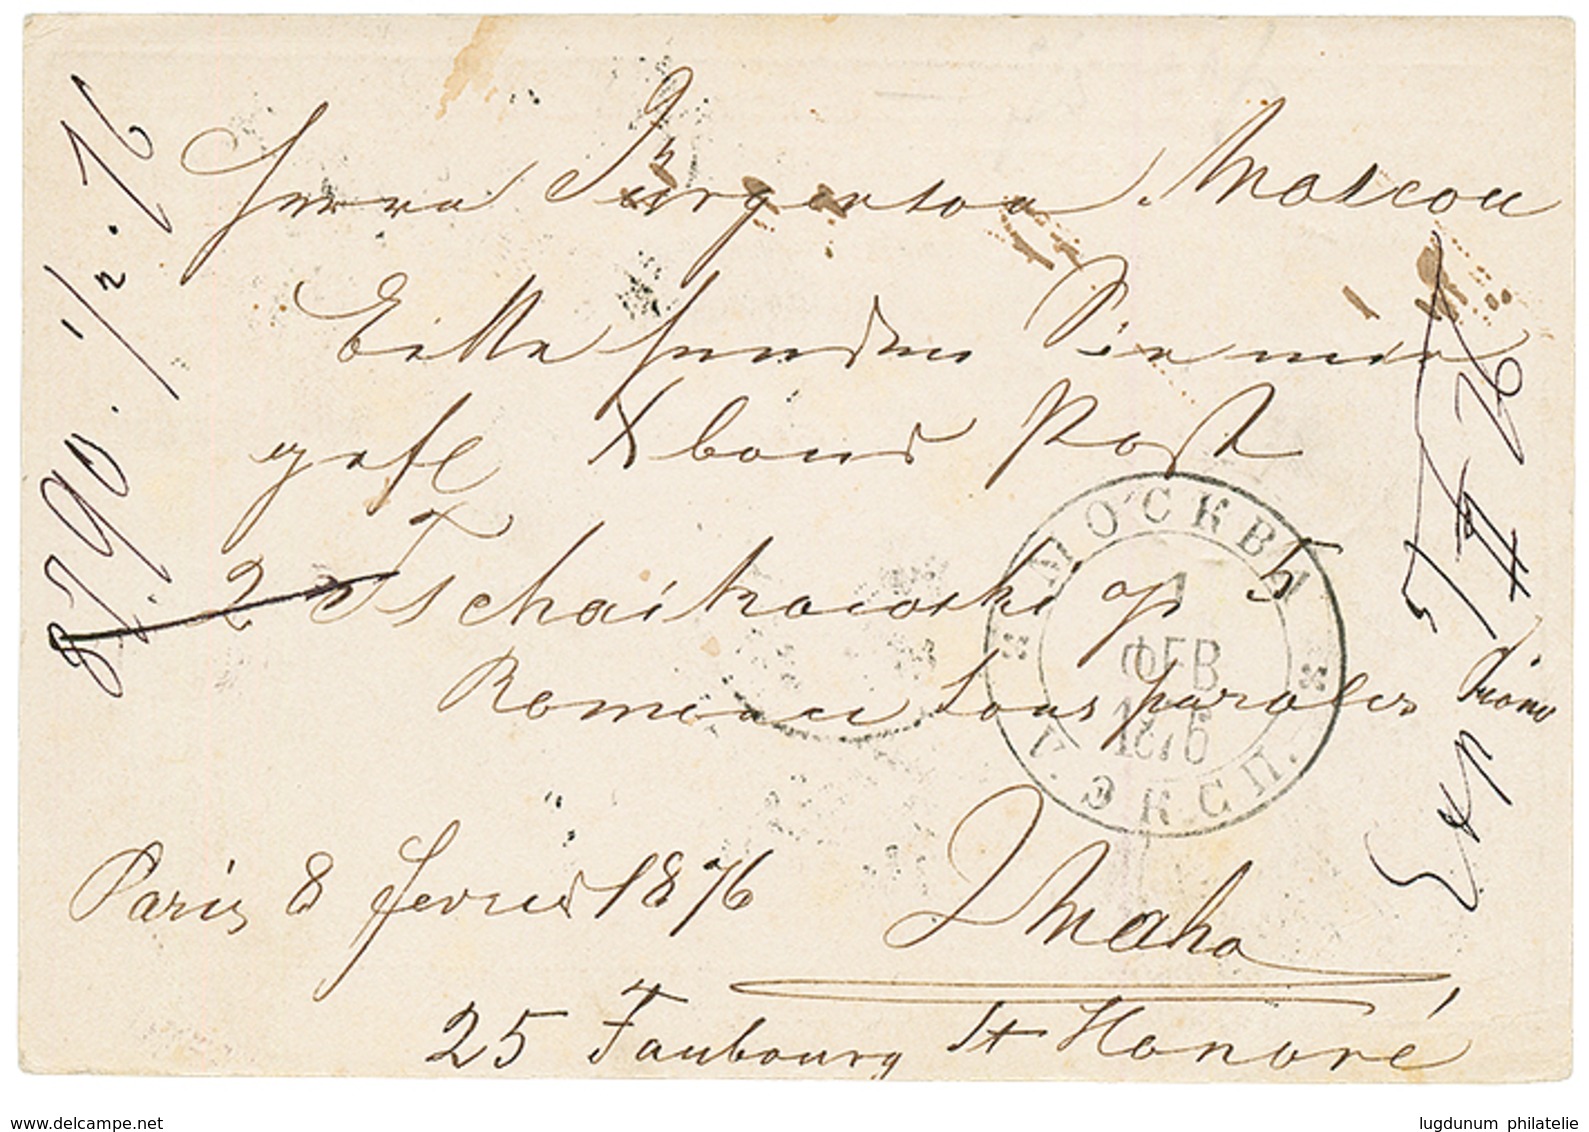 Herrn Jurgenson. Moscou
Bitte senden Sie mir
gefl Xband Post
2 Tschaikowski op 5
Romeance sans paroles Piano
Paris 8 fevrier 1876
Maho
25 Faubourg St Honoré
1/2.76
5/II 76
МОСКВА
1
ФЕВ
1876
V. ЭКСП.
www.delcampe.net
lugdunum philatelie